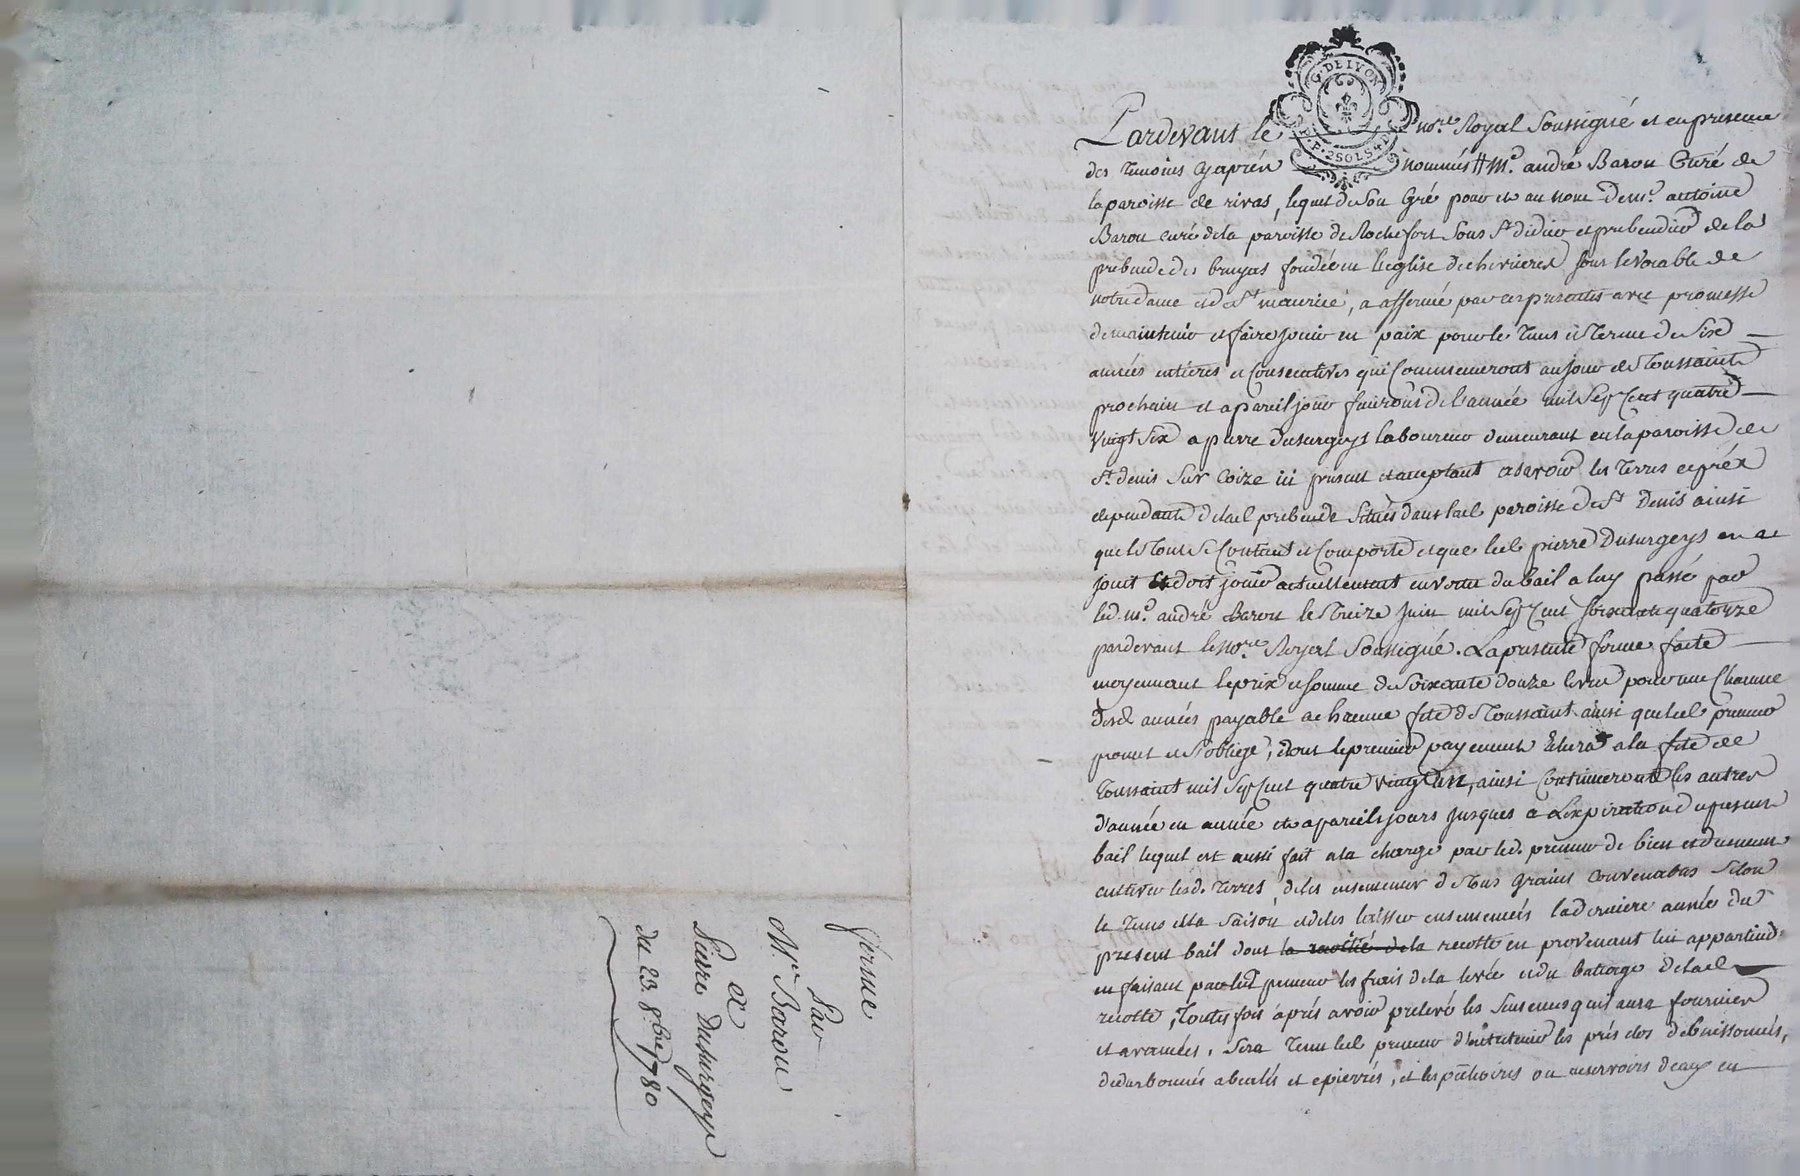 ferme
Par
Mre. Barou
a
Pierre Dusurgeys
du 23. 8bre 1780
G. DE LYON
P. 2 SOLS 4 D
Pardevant le nore. Royal Soussigné et en presence
des temoins cy après nommés # Me. andré Barou Curé de
la paroisse de rivas, lequel de Son Gré pour et au nom de mr. antoine
Barou curé de la paroisse de Rochefort Sous St didier et prebendier de la
prebende des bruyas fondée en l'eglise de chevrieres sous le vocable de
notre dame et de St maurice, a affermé par ces presentes avec promesse
de maintenir et faire jouir en paix pour le tems et terme de Six
années entieres et Consecutives qui Commenceront au jour de Toussaints
prochain et a pareil jour finiront de l'année mil Sept Cent quatre
vingt Six a pierre dusurgeys laboureur demeurant en la paroisse de
St. denis Sur Coize ici present et acceptant a Savoir les terres et préx
dependants de lad prebende Situés dans lad paroisse de St Denis ainsi
que le tout Se Contient et Comporte et que led pierre Dusurgeys en a
jouit et doit jouir actuellement en vertu du bail a luy passé par
led. me. andré Barou le treize juin mil Sept Cent soixante quatorze
pardevant le nore. Royal Soussigné. La presente ferme faite
moyennant le prix et somme de Soixante douze livres pour une Chacune
desd années payable a chacune fete de Toussaint ainsi que led preneur
promet et S'oblige, dont le premier payement Echera a la fete de
Toussaint mil Sept Cent quatre vingt un, ainsi Continueront les autres
d'année en année et a pareils jours jusques a L'expiration du present
bail lequel est aussi fait a la charge par led. preneur de bien et duement
cultiver lesd. terres de les ensemencer de tous grains convenables Selon
le tems et la Saison et de les laisser ensemencés la derniere année du
present bail dont la moitié de la recolte en provenant lui appartiend.
en faisant par led preneur les frais de la levée et du battage de lad
recolte, toutes fois après avoir prelevé les Semences qu'il aura fournies
et avancées. Sera tenu led preneur d'entretenir les prés clos debuissonnés,
dedarbonnés et epierrés, et les ou reservoirs d'eau en